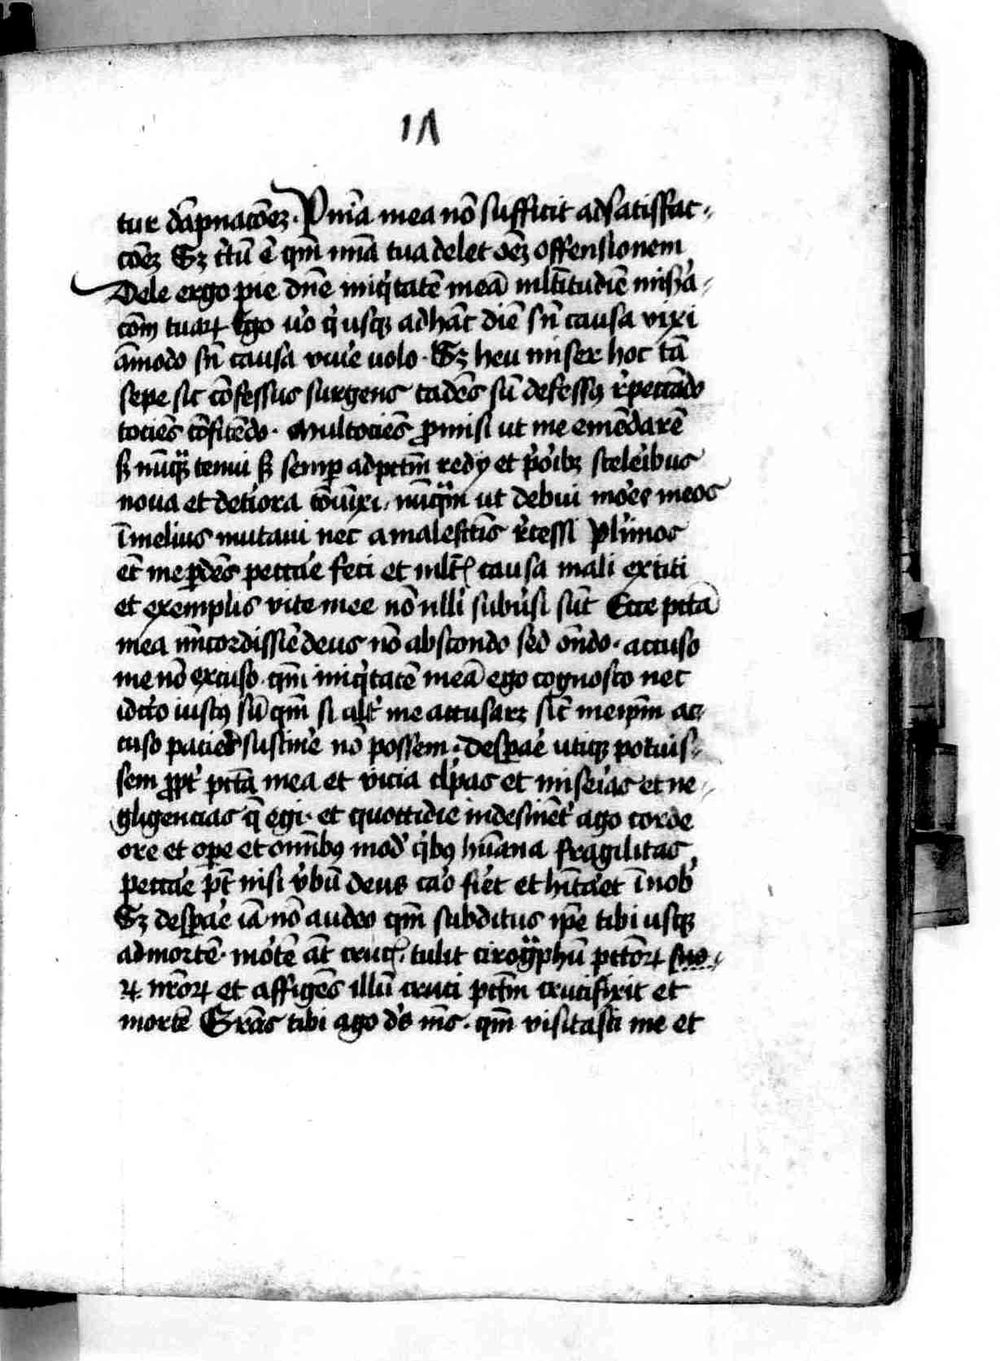 1Λ
tur dāpnacōeꝫ. Pnīa mea nō sufficit ad satisfac⸗
cōeꝫ Sꝫ c̄tū ē qm̄ mīa tua delet oēꝫ offensionem
Dele ergo pie dn̄e iniq̇tatē meā mltitudiē misḣa⸗
cōm tuaꝝ Ego u̇o q̇ usqꝫ ad hāc diē sn̄ causa vixi
āmodo sn̄ causa viu̇e uolo. Sꝫ heu miser hoc tā
sepe sic cōfessus surgens cadēs sū defessꝯ ṙpeccādo
tociēs cōfitēdo. Multociēs ꝓmisi ut me emēdarē
sꝫ nūqͣꝫ tenui sꝫ semꝑ ad pctm̄ redy et p̓oibꝫ scele̓ibus
nova et detiora cōiūxi. nūqͣm ut debui mo̓es meos
ī melius mutaui nec a malefctīs ṙcessi Pl̓imos
et̄ me ꝑdēs pecca̓e feci et mltꝭ causa mali extiti
et exemplis vite mee nō ulli subu̓si sūt Ecce pctā
mea mīcordissiē deus nō abscondo sed on̄do. accuso
me nō excuso. qm̄ iniq̇tatē meā ego cognosco nec
idc̓co iustꝯ sū qm̄ si alt̓ me accusaꝫ sic̄ meip̄m ac⸗
cuso pacie̓t sustine̓e nō possem. despa̓e utiqꝫ potuis⸗
sem ꝓpt̓ pctā mea et vicia cl̓pas et mise̓ias et ne⸗
gligencias q̄ egi. et quottidie indesinēt̓ ago corde
ore et oꝑe et om̄ibꝯ mod̓ q̇bꝯ hūana fragilitas
pecca̓e pt̄ nisi v̓bū deus ca̓o fi̓et et hīta̓et ī nob̓
Sꝫ despa̓e iā nō audeo qm̄ subditus ip̄e tibi usqꝫ
ad mortē. mo̓tē at̄ crucꝭ. tulit cirogͣphū pctōꝝ
nr̄oꝝ et affigēs illū cruci pctm̄ crucifixit et
mortē Grās tibi ago d̓s m̄s. qm̄ visitasti me et